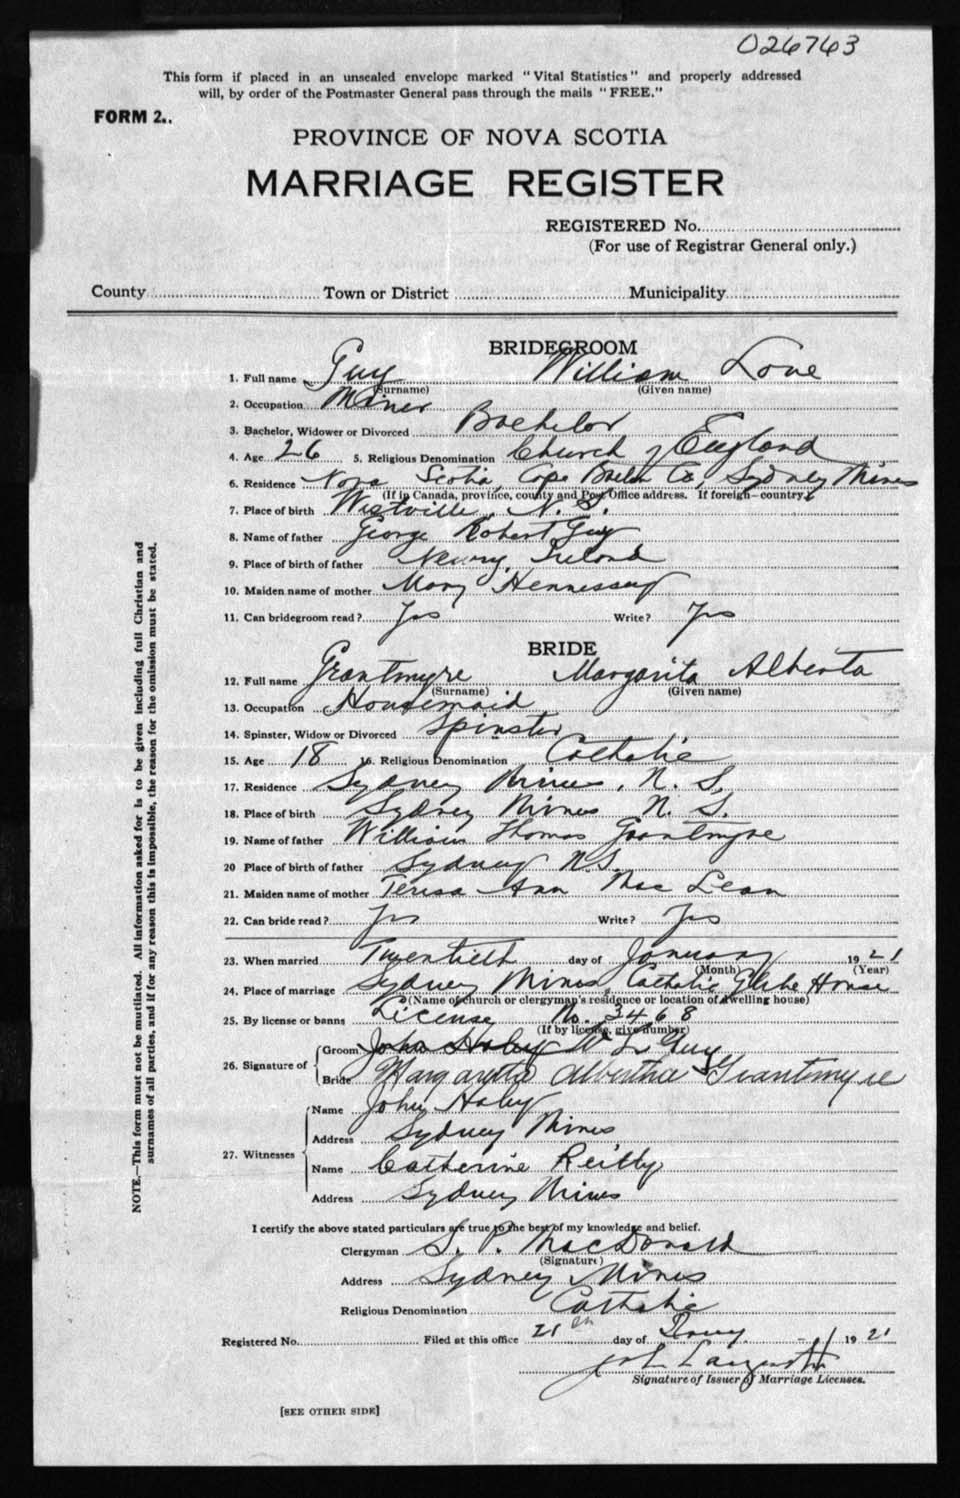 026763
This form if placed in an unsealed envelope marked "Vital Statistics" and properly addressed
will, by order of the Postmaster General pass through the mails "FREE."
FORM 2..
PROVINCE OF NOVA SCOTIA
MARRIAGE REGISTER
REGISTERED No.
(For use of Registrar General only.)
County Town or District Municipality
BRIDEGROOM
1. Full name Guy William Love
(Surname) (Given name)
2. Occupation Miner
3. Bachelor, Widower or Divorced Bachelor
4. Age 26 5. Religious Denomination Church of England
6. Residence Nova Scotia, Cape Breton Co, Sydney Mines
(If in Canada, province, county and Post Office address. If foreign—country.)
7. Place of birth Westville, N. S.
8. Name of father George Robert Guy
9. Place of birth of father Newry, Ireland
10. Maiden name of mother Mary Hennessey
11. Can bridegroom read? Yes Write? Yes
BRIDE
12. Full name Grantmyre Margarita Alberta
(Surname) (Given name)
13. Occupation Housemaid
14. Spinster, Widow or Divorced Spinster
15. Age 18 16. Religious Denomination Catholic
17. Residence Sydney Mines, N. S.
18. Place of birth Sydney Mines N. S.
19. Name of father William Thomas Grantmyre
20 Place of birth of father Sydney N.S.
21. Maiden name of mother Teresa Ann Mac Lean
22. Can bride read? Yes Write? Yes
23. When married Twentieth day of January 1921
(Month) (Year)
24. Place of marriage Sydney Mines, Catholic Glebe House
(Name of church or clergyman's residence or location of dwelling house)
25. By license or banns License No. 3468
(If by license, give number)
26. Signature of Groom John Haley W L Guy
Bride Margarita Albertha Grantmyre
27. Witnesses Name John Haley
Address Sydney Mines
Name Catherine Reilly
Address Sydney Mines
I certify the above stated particulars are true to the best of my knowledge and belief.
Clergyman S. P. MacDonald
(Signature)
Address Sydney Mines
Religious Denomination Catholic
Registered No. Filed at this office 21 day of 1921
Signature of Issuer of Marriage Licenses.
[SEE OTHER SIDE]
NOTE.—This form must not be mutilated. All information asked for is to be given including full Christian and
surnames of all parties, and if for any reason this is impossible, the reason for the omission must be stated.